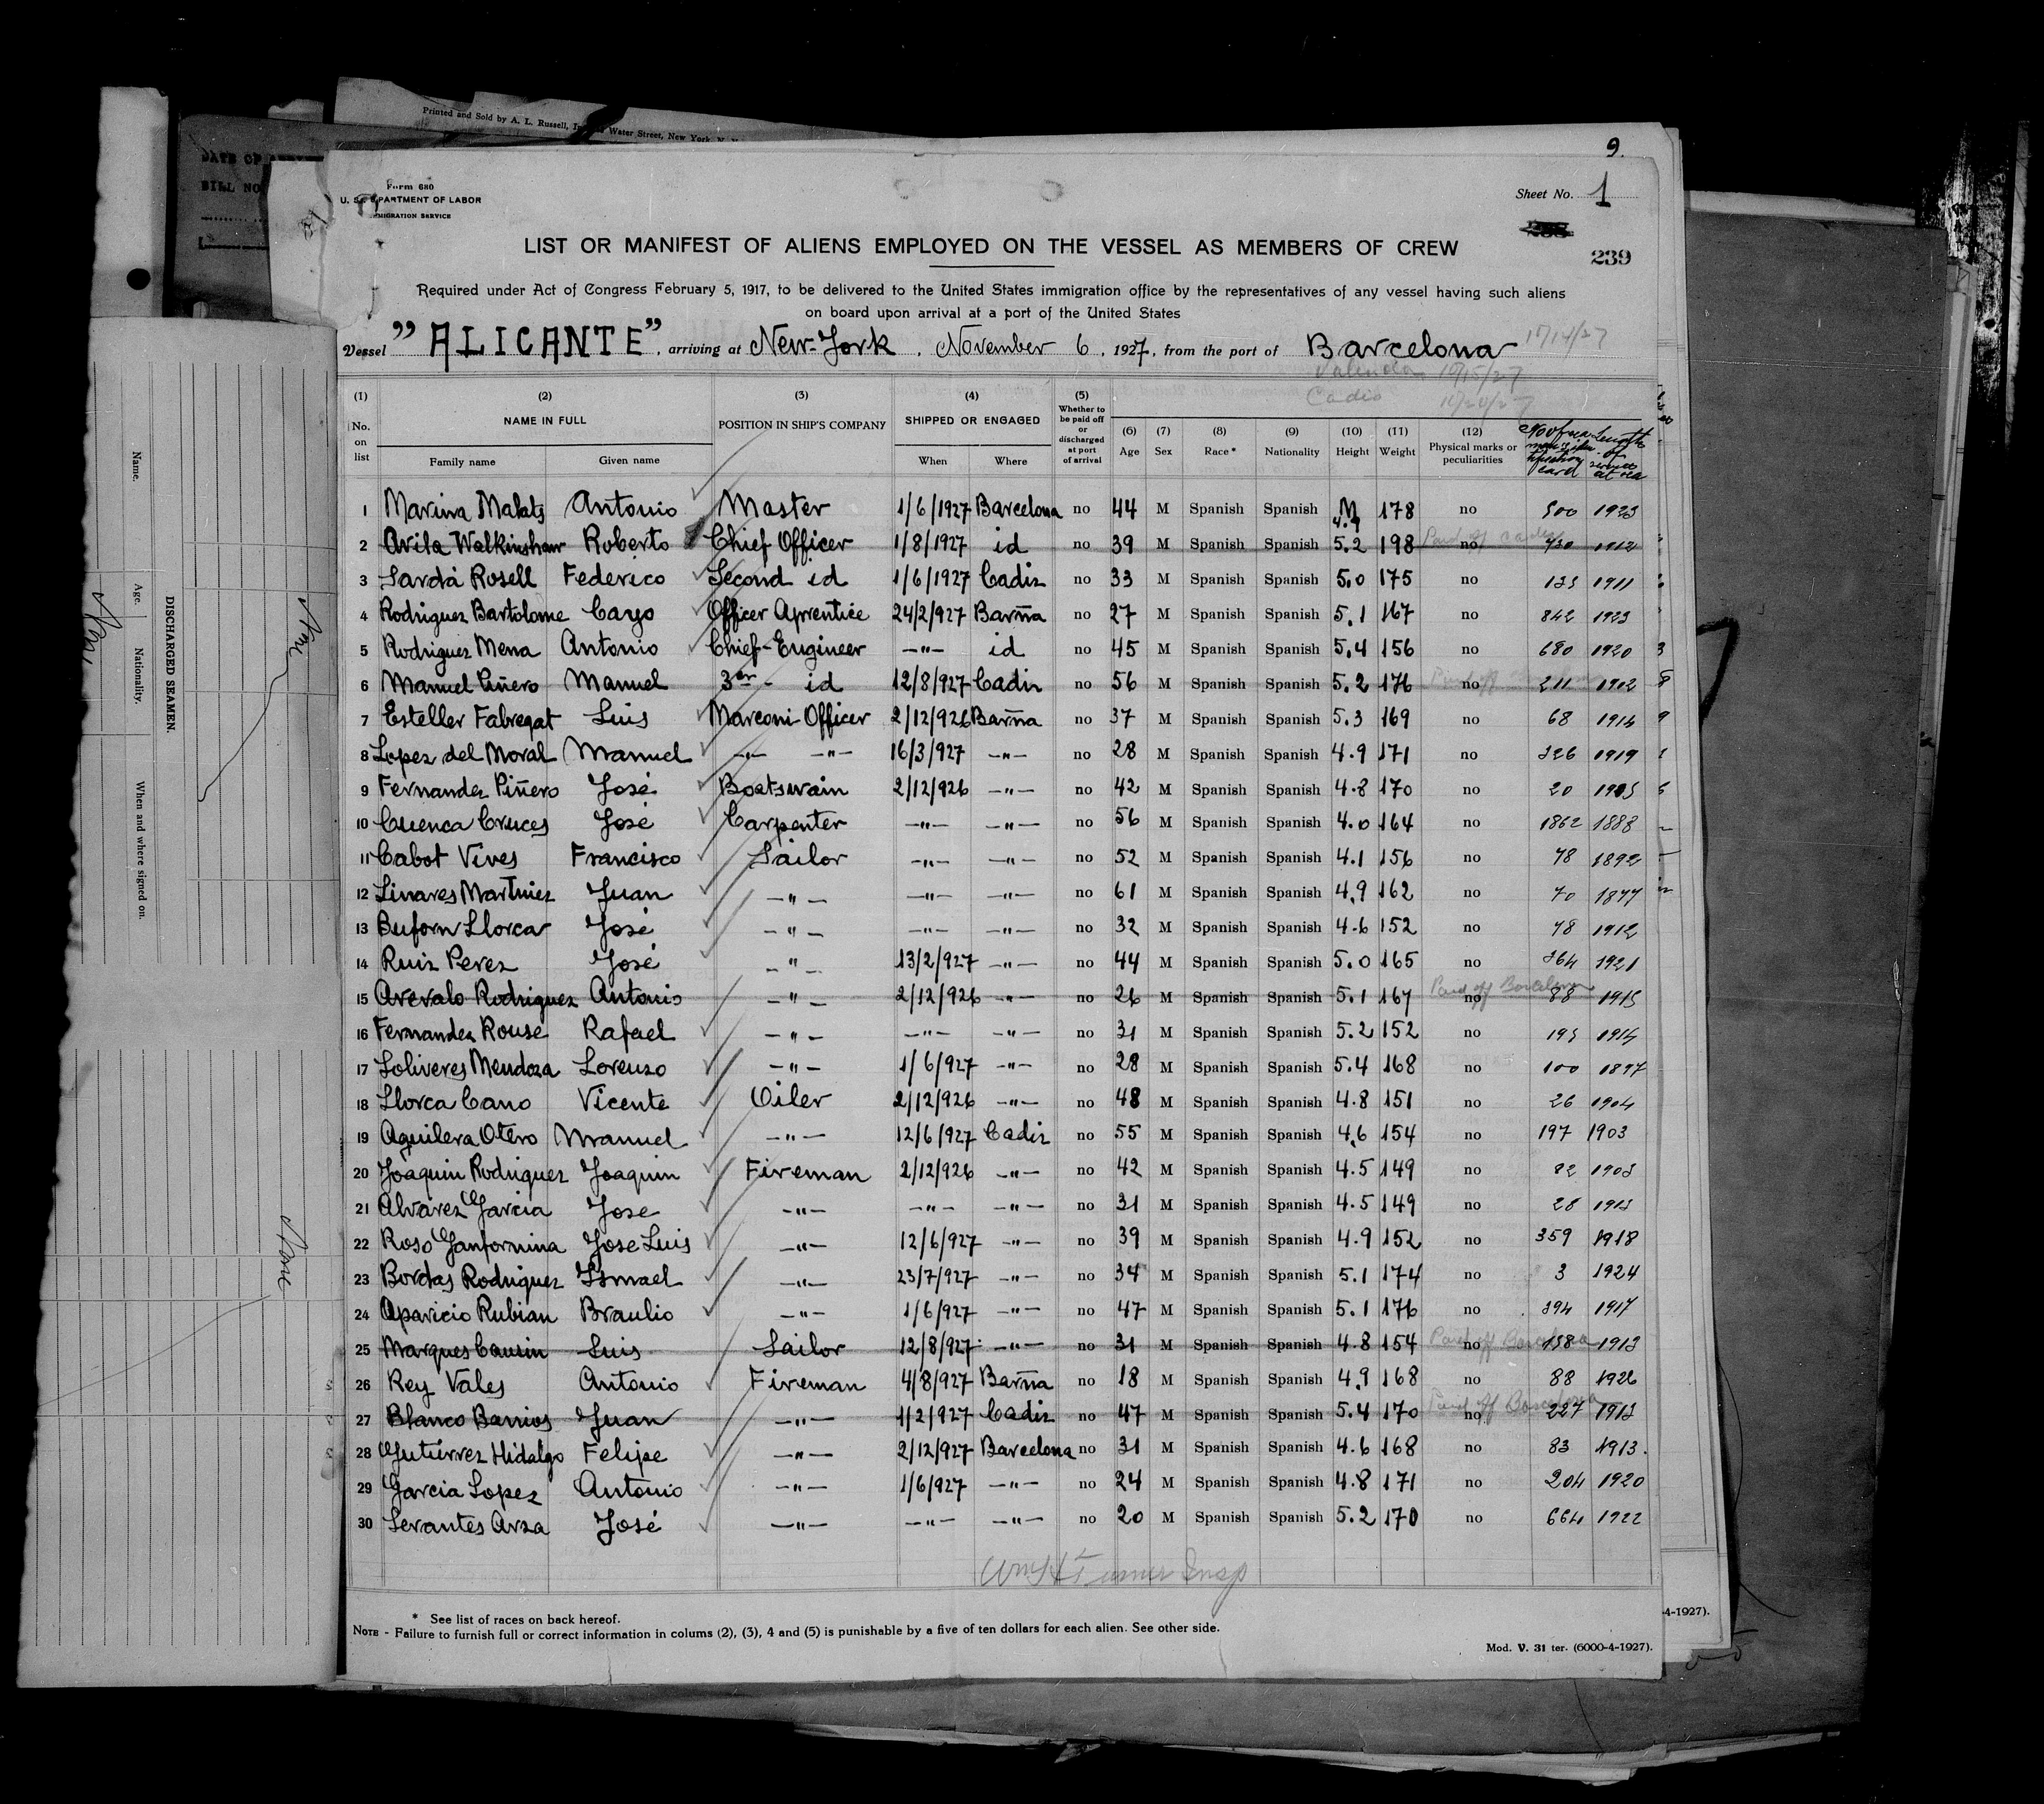 Printed and Sold by A. L. Russell, Water Street, New York, N. Y.
DATE OF
BILL NO
9.
Form 680
U. S. DEPARTMENT OF LABOR
IMMIGRATION SERVICE
Sheet No. 1
239
LIST OR MANIFEST OF ALIENS EMPLOYED ON THE VESSEL AS MEMBERS OF CREW
Required under Act of Congress February 5, 1917, to be delivered to the United States immigration office by the representatives of any vessel having such aliens
on board upon arrival at a port of the United States
Vessel "ALICANTE", arriving at New-York, November 6, 1927, from the port of Barcelona
Cadiz
(1) (2) (3) (4) (5)
No. on list NAME IN FULL POSITION IN SHIP'S COMPANY SHIPPED OR ENGAGED Whether to be paid off or discharged at port of arrival
Family name Given name When Where
(6) Age (7) Sex (8) Race * (9) Nationality (10) Height (11) Weight (12) Physical marks or peculiarities card Length of service at sea
1 Marina Malats Antonio Master 1/6/1927 Barcelona no 44 M Spanish Spanish 4.9 178 no 500 1923
2 Avila Walkinshaw Roberto Chief Officer 1/8/1927 id no 39 M Spanish Spanish 5.2 198 no 1912
3 Sardá Rosell Federico Second id 1/6/1927 Cadiz no 33 M Spanish Spanish 5.0 175 no 1911
4 Rodriguez Bartolome Cayo Officer Aprentice 24/2/927 Barña no 27 M Spanish Spanish 5.1 167 no 842 1923
5 Rodriguez Mena Antonio Chief-Engineer —"— id no 45 M Spanish Spanish 5.4 156 no 680 1920
6 Manuel Piñero Manuel 3er - id 12/8/927 Cadiz no 56 M Spanish Spanish 5.2 176 no 211 1902
7 Esteller Fabregat Luis Marconi Officer 2/12/926 Barña no 37 M Spanish Spanish 5.3 169 no 68 1914
8 Lopez del Moral Manuel —"— —"— 16/3/927 —"— no 28 M Spanish Spanish 4.9 171 no 326 1919
9 Fernandez Piñero José Boatswain 2/12/926 —"— no 42 M Spanish Spanish 4.8 170 no 20 1905
10 Cuenca Cruces José Carpenter —"— —"— no 56 M Spanish Spanish 4.0 164 no 1862 1888
11 Cabot Vives Francisco Sailor —"— —"— no 52 M Spanish Spanish 4.1 156 no 78 1892
12 Linares Martinez Juan —"— —"— —"— no 61 M Spanish Spanish 4.9 162 no 70 1877
13 Buforn Llorca José —"— —"— —"— no 32 M Spanish Spanish 4.6 152 no 78 1912
14 Ruiz Perez José —"— 13/2/927 —"— no 44 M Spanish Spanish 5.0 165 no 364 1921
15 Arevalo Rodriguez Antonio —"— 2/12/926 —"— no 26 M Spanish Spanish 5.1 167 Paid off Barcelona no 88 1915
16 Fernandez Rouse Rafael —"— —"— —"— no 31 M Spanish Spanish 5.2 152 no 195 1914
17 Soliveres Mendoza Lorenzo —"— 1/6/927 —"— no 28 M Spanish Spanish 5.4 168 no 100 1897
18 Llorca Cano Vicente Oiler 2/12/926 —"— no 48 M Spanish Spanish 4.8 151 no 26 1904
19 Aguilera Otero Manuel —"— 12/6/927 Cadiz no 55 M Spanish Spanish 4.6 154 no 197 1903
20 Joaquin Rodriguez Joaquin Fireman 2/12/926 —"— no 42 M Spanish Spanish 4.5 149 no 82 1903
21 Alvarez Garcia Jose —"— —"— —"— no 31 M Spanish Spanish 4.5 149 no 28 1913
22 Roso Ganfornina Jose Luis —"— 12/6/927 —"— no 39 M Spanish Spanish 4.9 152 no 359 1918
23 Bordas Rodriguez Ismael —"— 23/7/927 —"— no 34 M Spanish Spanish 5.1 174 no 3 1924
24 Aparicio Rubian Braulio —"— 1/6/927 —"— no 47 M Spanish Spanish 5.1 176 no 394 1917
25 Marques Causin Luis Sailor 12/8/927 —"— no 31 M Spanish Spanish 4.8 154 Paid off Barcelona no 158 1913
26 Rey Vales Antonio Fireman 4/8/927 Barña no 18 M Spanish Spanish 4.9 168 no 88 1926
27 Blanco Barrios Juan —"— 1/2/927 Cadiz no 47 M Spanish Spanish 5.4 170 Paid off Barcelona no 227 1913
28 Gutiérrez Hidalgo Felipe —"— 2/12/927 Barcelona no 31 M Spanish Spanish 4.6 168 no 83 1913.
29 Garcia Lopez Antonio —"— 1/6/927 —"— no 24 M Spanish Spanish 4.8 171 no 204 1920
30 Servantes Arza José —"— —"— —"— no 20 M Spanish Spanish 5.2 170 no 664 1922
Turner Insp
* See list of races on back hereof.
NOTE - Failure to furnish full or correct information in colums (2), (3), 4 and (5) is punishable by a five of ten dollars for each alien. See other side.
Mod. V. 31 ter. (6000-4-1927).
4-1927).
DISCHARGED SEAMEN.
Name. Age. Nationality. When and where signed on.
None